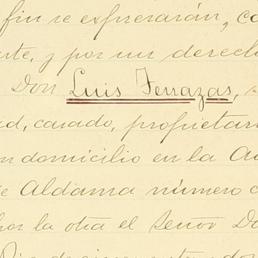 fin se expresarán, co
arte, y por un derech
Don Luis Terrazas,
ad, casado, propietari
n domicilio en la A
e Aldama número c
por la otra el Señor Do